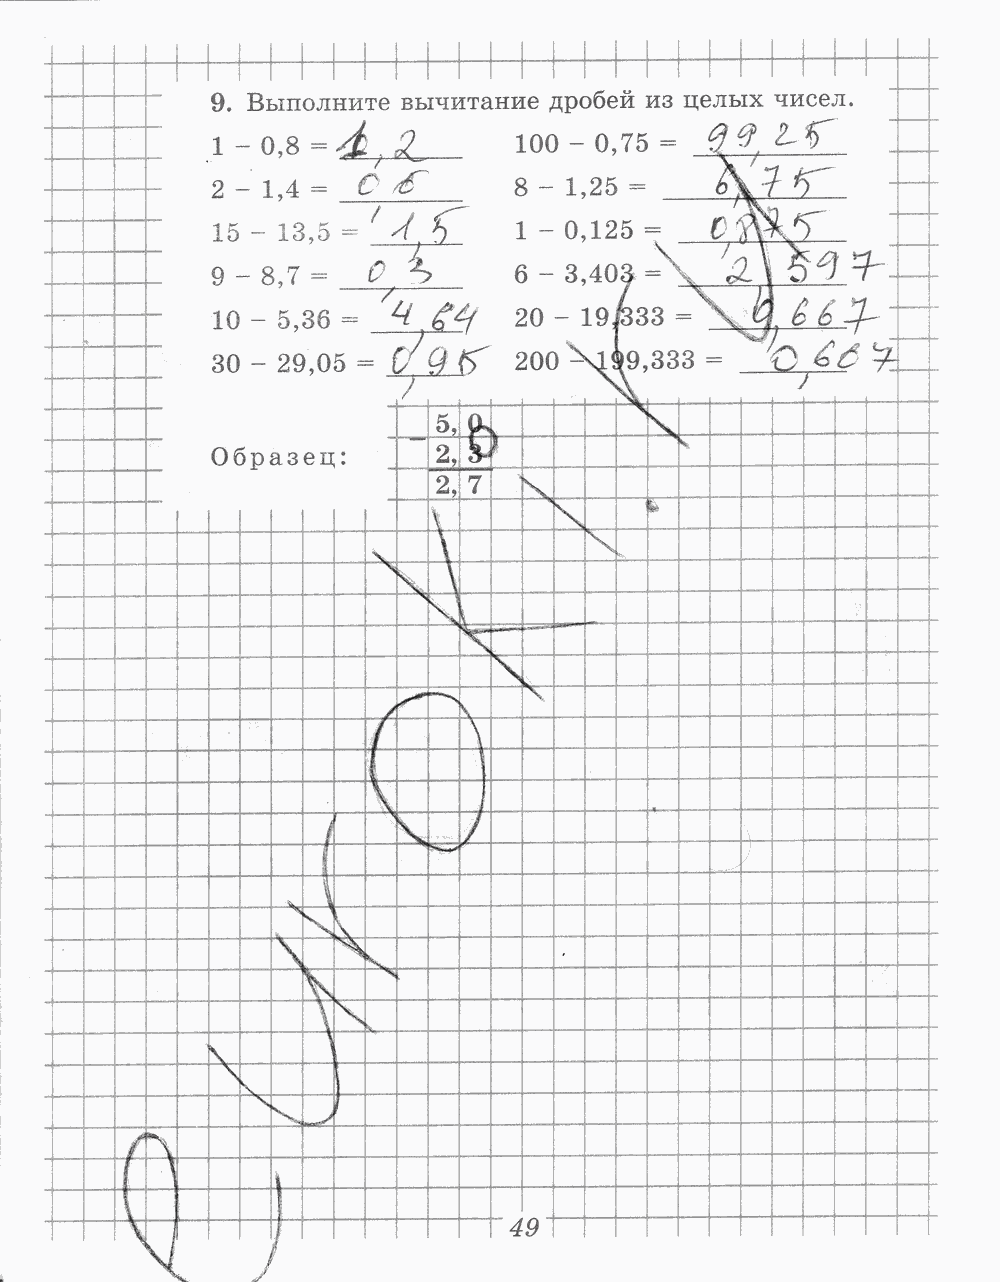 9. Выполните вычитание дробей из целых чисел.
1 – 0,8 = 0,2
100 – 0,75 = 99,25
2 – 1,4 = 0,6
8 – 1,25 = 6,75
15 – 13,5 = 1,5
1 – 0,125 = 0,875
9 – 8,7 = 0,3
6 – 3,403 = 2,597
10 – 5,36 = 4,64
20 – 19,333 = 0,667
30 – 29,05 = 0,95
200 – 199,333 = 0,667
Образец:
– 5, 0
2, 3
2, 7
49